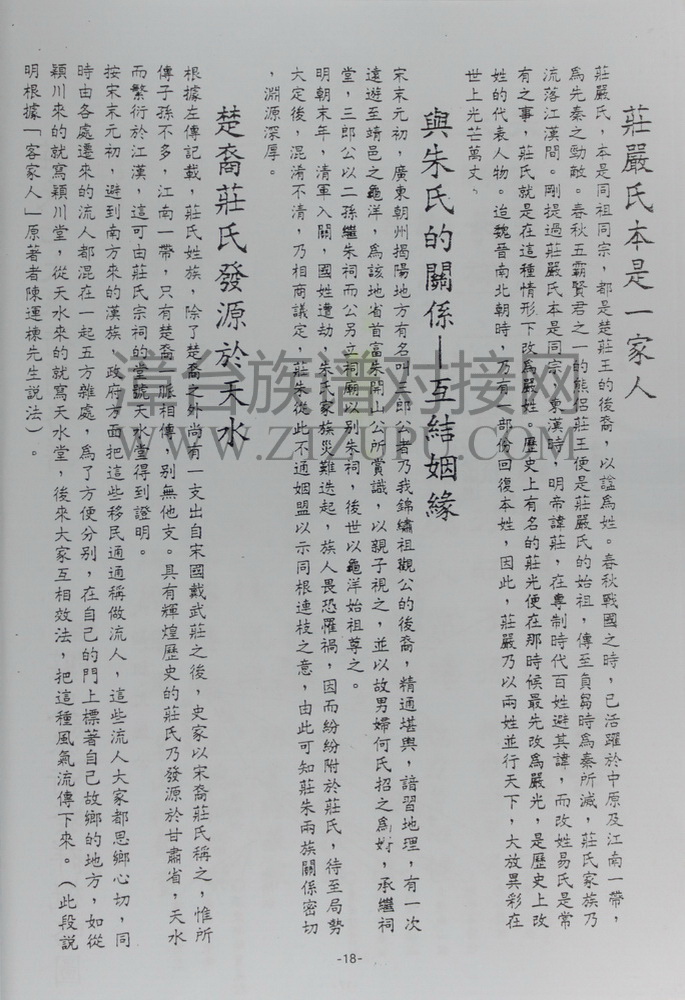 莊嚴氏本是一家人
莊嚴氏,本是同祖同宗,都是楚莊王的後裔,以諡為姓。春秋戰國之時,已活躍於中原及江南一帶,
為先秦之勁敵。春秋五霸賢君之一的熊侶莊王便是莊嚴氏的始祖,傳至負芻時為秦所滅,莊氏家族乃
流落江漢間。剛提過莊嚴氏本是同宗,東漢時,明帝諱莊,在專制時代百姓避其諱,而改姓易氏是常
有之事,莊氏就是在這種情形下改為嚴姓。歷史上有名的莊光便在那時候最先改為嚴光,是歷史上改
姓的代表人物。迨魏晉南北朝時,乃有一部份回復本姓,因此,莊嚴乃以兩姓並行天下,大放異彩在
世上光芒萬丈。
與朱氏的關係—互結姻緣
宋末元初,廣東朝州揭陽地方有名叫三郎公者乃我錦繡祖觀公的後裔,精通堪輿,諳習地理,有一次
遠遊至靖邑之龜洋,為該地省首富朱開山公所賞識,以親子視之,並以故男婦何氏招之為婿,承繼祠
堂,三郎公以二孫繼朱祠而公另立祠廟以別朱祠,後世以龜洋始祖尊之。
明朝末年,清軍入關,國姓遭劫,朱氏家族災難迭起,族人畏恐罹禍,因而紛紛附於莊氏,待至局勢
大定後,混淆不清,乃相商議定,莊朱從此不通姻盟以示同根連枝之意,由此可知莊朱兩族關係密切
,淵源深厚。
楚裔莊氏發源於天水
根據左傳記載,莊氏姓族,除了楚裔之外尚有一支出自宋國戴武莊之後,史家以宋裔莊氏稱之,惟所
傳子孫不多,江南一帶,只有楚裔一脈相傳,別無他支。具有輝煌歷史的莊氏乃發源於甘肅省,天水
而繁衍於江漢,這可由莊氏宗祠的堂號天水堂得到證明。
按宋末元初,避到南方來的漢族,政府方面把這些移民通通稱做流人,這些流人大家都思鄉心切,同
時由各處遷來的流人都混在一起五方雜處,為了方便分別,在自己的門上標著自己故鄉的地方,如從
潁川來的就寫潁川堂,從天水來的就寫天水堂,後來大家互相效法,把這種風氣流傳下來。(此段說
明根據「客家人」原著者陳運棟先生說法)。
-18-
道台族谱对接网
WWW.ZTZUPU.COM